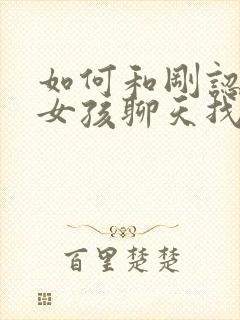 如何和剛認
女孩聊天找
百里楚楚